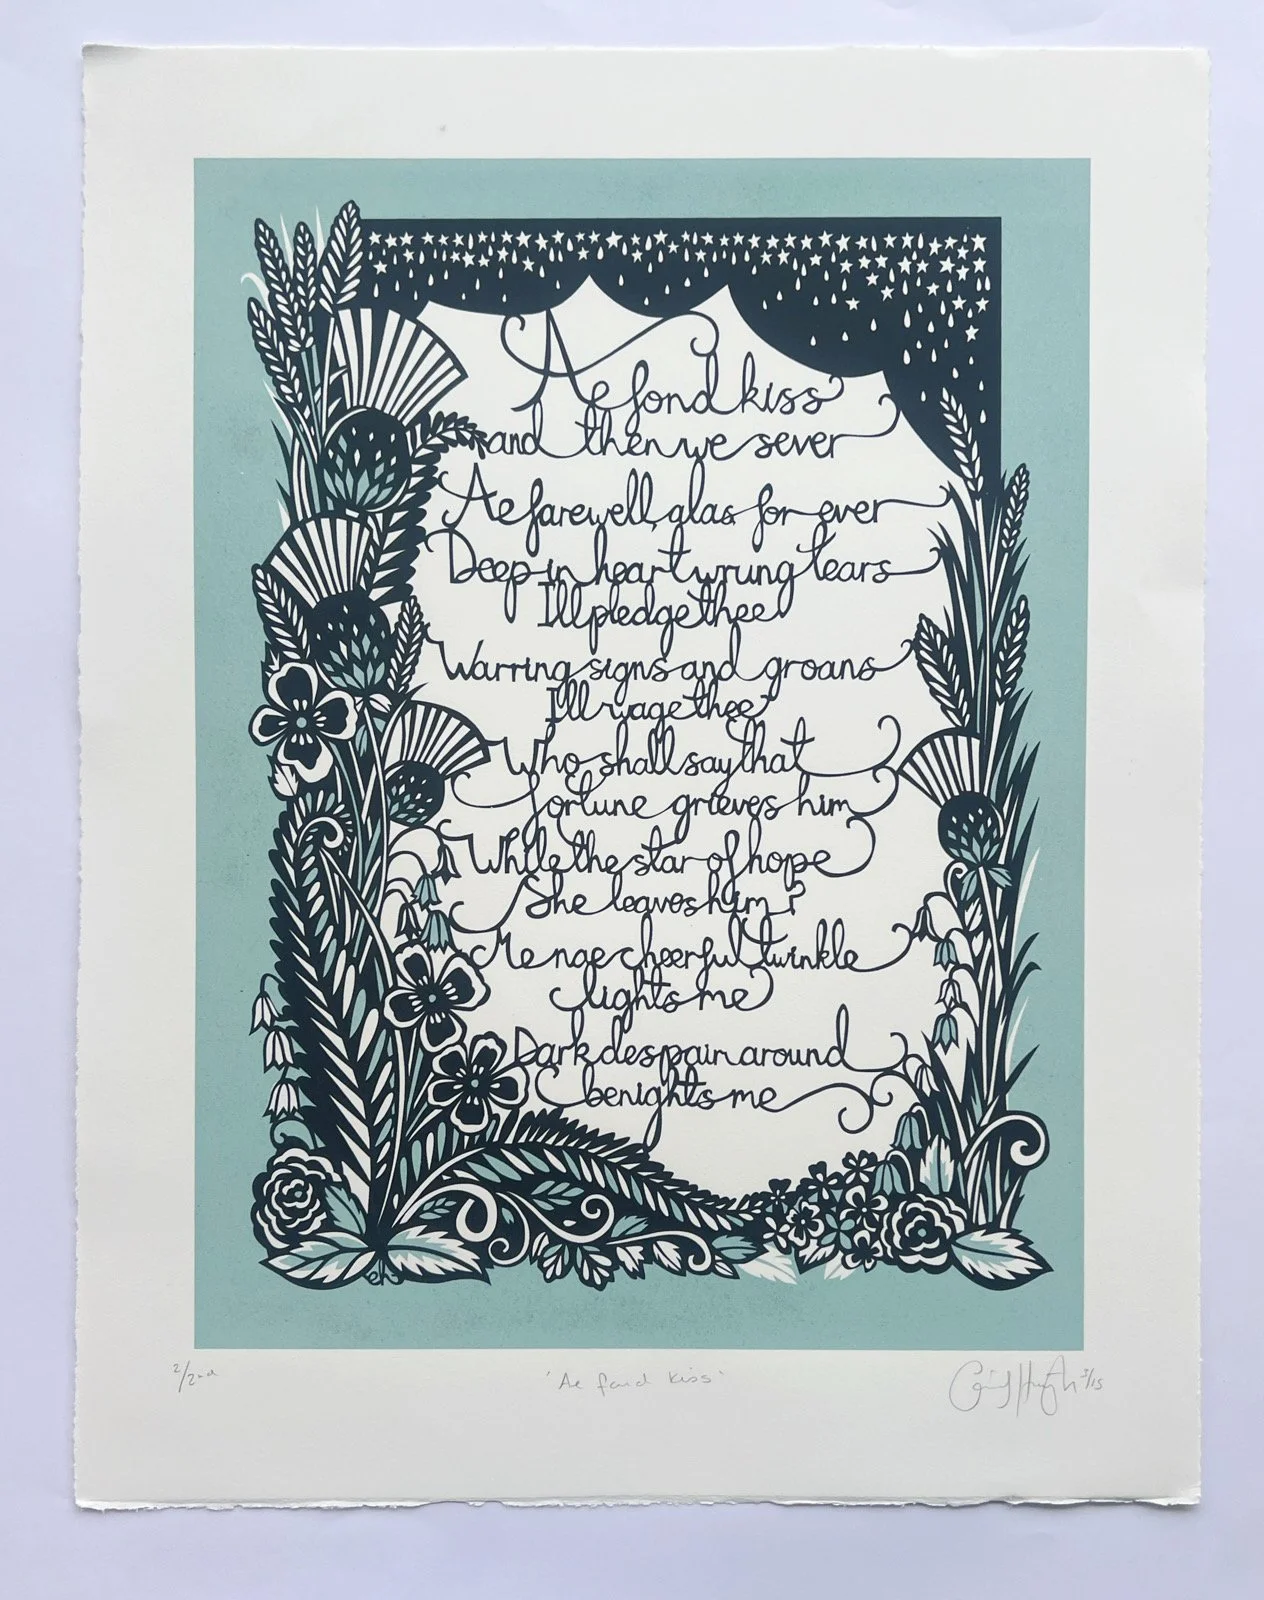 Ae fond kiss
and then we sever
Ae farewell, alas for ever
Deep in heart wrung tears
Ill pledge thee
Warring signs and groans
Ill wage thee
Who shall say that
fortune grieves him
While the star of hope
She leaves him?
Me nae cheerful twinkle
lights me
Dark despair around
benights me
eh
2/2nd
'Ae fond kiss'
3/15